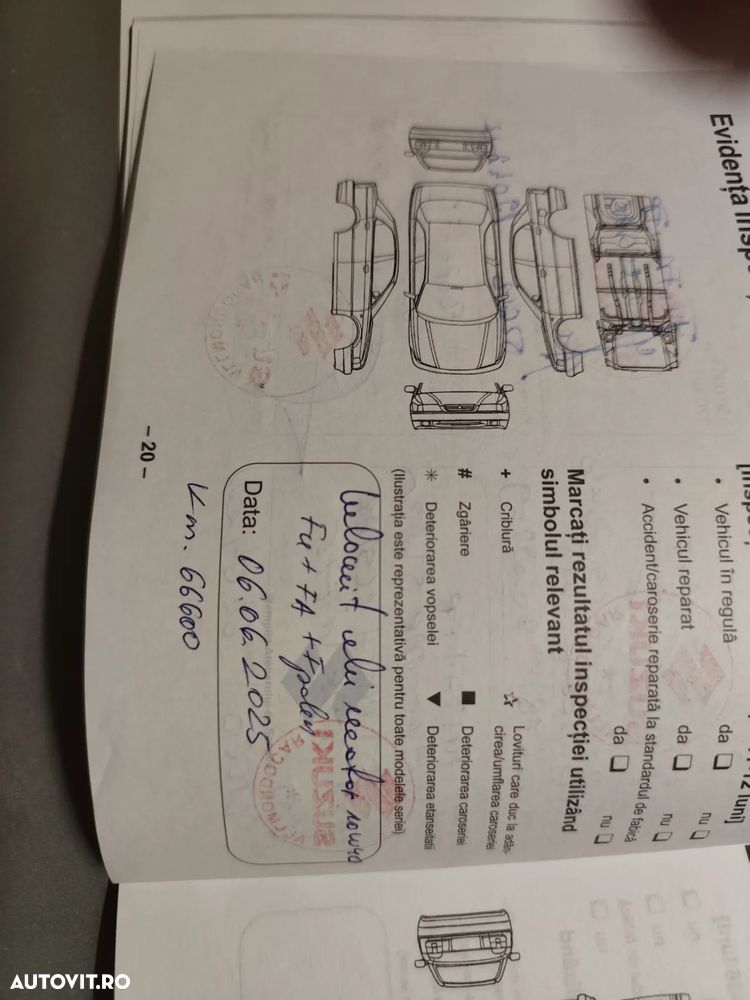 Evidența
12 luni]
• Vehicul în regulă da ☐ nu ☐
• Vehicul reparat da ☐ nu ☐
• Accident/caroserie reparată la standardul de fabică da ☐ nu ☐
Marcați rezultatul inspecției utilizând
simbolul relevant
+ Criblură
☆ Lovituri care duc la adân-
cirea/umflarea caroseriei
# Zgâriere
■ Deteriorarea caroseriei
✳ Deteriorarea vopselei
▼ Deteriorarea etanseitatii
(Ilustrația este reprezentativă pentru toate modelele seriei)
inlocuit ulei motor 10W40
FU + FA + Fpolen
Data: 06.06.2025
Km. 66600
– 20 –
AUTOVIT.RO